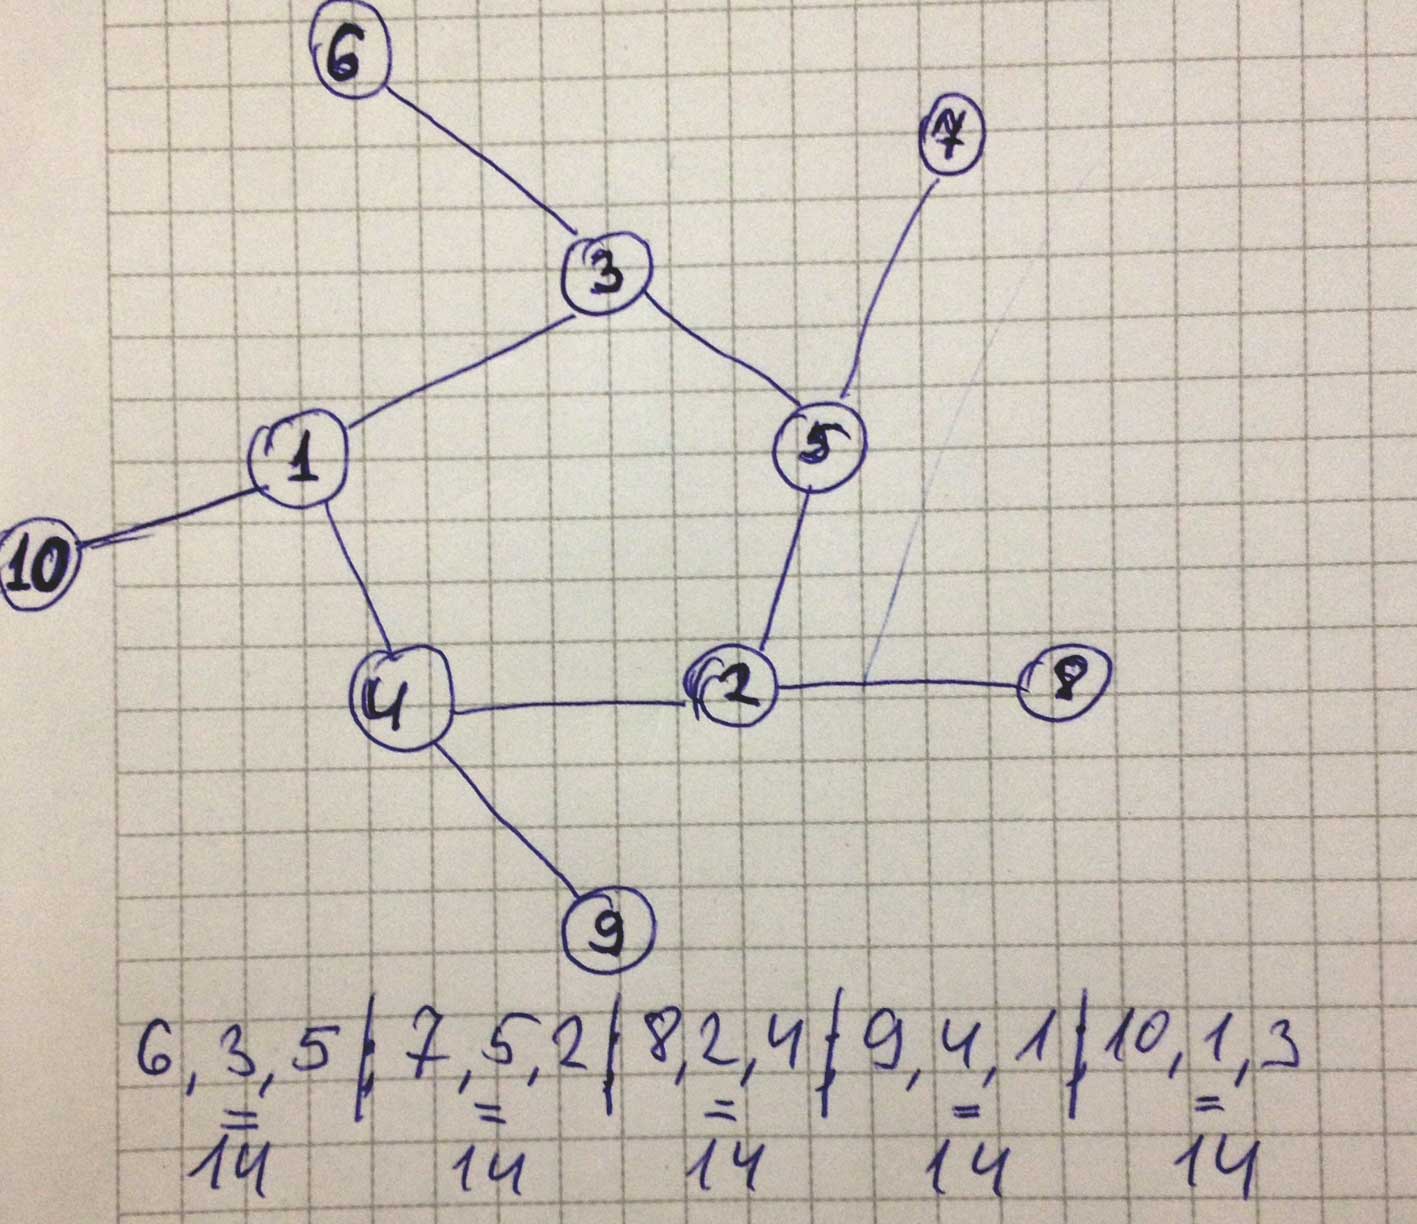 6
7
3
1
5
10
4
2
8
9
6, 3, 5 | 7, 5, 2 | 8, 2, 4 | 9, 4, 1 | 10, 1, 3
= = = = =
14 14 14 14 14